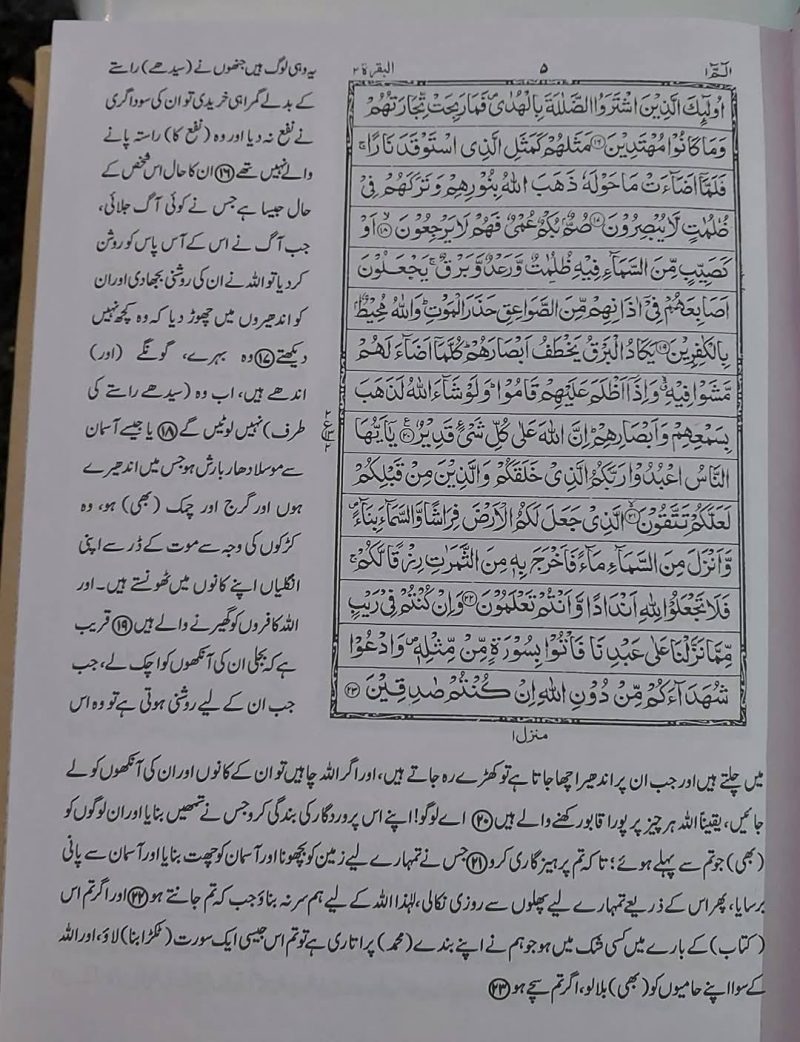 الٓمّٓ ١
٥
البقرة ٢
اُولٰٓئِكَ الَّذِيْنَ اشْتَرَوُا الضَّلٰلَةَ بِالْهُدٰى فَمَا رَبِحَتْ تِّجَارَتُهُمْ
وَمَا كَانُوْا مُهْتَدِيْنَ ۝١٦ مَثَلُهُمْ كَمَثَلِ الَّذِى اسْتَوْقَدَ نَارًا ۚ
فَلَمَّآ اَضَآءَتْ مَا حَوْلَهٗ ذَهَبَ اللّٰهُ بِنُوْرِهِمْ وَتَرَكَهُمْ فِىْ
ظُلُمٰتٍ لَّا يُبْصِرُوْنَ ۝١٧ صُمٌّۢ بُكْمٌ عُمْىٌ فَهُمْ لَا يَرْجِعُوْنَ ۝١٨ اَوْ
كَصَيِّبٍ مِّنَ السَّمَآءِ فِيْهِ ظُلُمٰتٌ وَّرَعْدٌ وَّبَرْقٌ ۚ يَجْعَلُوْنَ
اَصَابِعَهُمْ فِىْٓ اٰذَانِهِمْ مِّنَ الصَّوَاعِقِ حَذَرَ الْمَوْتِ ؕ وَاللّٰهُ مُحِيْطٌۢ
بِالْكٰفِرِيْنَ ۝١٩ يَكَادُ الْبَرْقُ يَخْطَفُ اَبْصَارَهُمْ ؕ كُلَّمَآ اَضَآءَ لَهُمْ
مَّشَوْا فِيْهِ ۙ وَاِذَآ اَظْلَمَ عَلَيْهِمْ قَامُوْا ؕ وَلَوْ شَآءَ اللّٰهُ لَذَهَبَ
بِسَمْعِهِمْ وَاَبْصَارِهِمْ ؕ اِنَّ اللّٰهَ عَلٰى كُلِّ شَىْءٍ قَدِيْرٌ ۝٢٠ يٰٓاَيُّهَا
النَّاسُ اعْبُدُوْا رَبَّكُمُ الَّذِىْ خَلَقَكُمْ وَالَّذِيْنَ مِنْ قَبْلِكُمْ
لَعَلَّكُمْ تَتَّقُوْنَ ۝٢١ الَّذِىْ جَعَلَ لَكُمُ الْاَرْضَ فِرَاشًا وَّالسَّمَآءَ بِنَآءً ۪
وَّاَنْزَلَ مِنَ السَّمَآءِ مَآءً فَاَخْرَجَ بِهٖ مِنَ الثَّمَرٰتِ رِزْقًا لَّكُمْ ۚ
فَلَا تَجْعَلُوْا لِلّٰهِ اَنْدَادًا وَّاَنْتُمْ تَعْلَمُوْنَ ۝٢٢ وَاِنْ كُنْتُمْ فِىْ رَيْبٍ
مِّمَّا نَزَّلْنَا عَلٰى عَبْدِنَا فَاْتُوْا بِسُوْرَةٍ مِّنْ مِّثْلِهٖ ۪ وَادْعُوْا
شُهَدَآءَكُمْ مِّنْ دُوْنِ اللّٰهِ اِنْ كُنْتُمْ صٰدِقِيْنَ ۝٢٣
منزل ١
یہ وہی لوگ ہیں جنھوں نے (سیدھے) راستے
کے بدلے گمراہی خریدی تو ان کی سوداگری
نے نفع نہ دیا اور وہ (نفع کا) راستہ پانے
والے نہیں تھے ⑯ ان کا حال اس شخص کے
حال جیسا ہے جس نے کوئی آگ جلائی،
جب آگ نے اس کے آس پاس کو روشن
کر دیا تو اللہ نے ان کی روشنی بجھا دی اور ان
کو اندھیروں میں چھوڑ دیا کہ وہ کچھ نہیں
دیکھتے ⑰ وہ بہرے، گونگے (اور)
اندھے ہیں، اب وہ (سیدھے راستے کی
طرف) نہیں لوٹیں گے ⑱ یا جیسے آسمان
سے موسلا دھار بارش ہو جس میں اندھیرے
ہوں اور گرج اور چمک (بھی) ہو، وہ
کڑکوں کی وجہ سے موت کے ڈر سے اپنی
انگلیاں اپنے کانوں میں ٹھونستے ہیں۔ اور
اللہ کافروں کو گھیرنے والے ہیں ⑲ قریب
ہے کہ بجلی ان کی آنکھوں کو اچک لے، جب
جب ان کے لیے روشنی ہوتی ہے تو وہ اس
میں چلتے ہیں اور جب ان پر اندھیرا چھا جاتا ہے تو کھڑے رہ جاتے ہیں، اور اگر اللہ چاہیں تو ان کے کانوں اور ان کی آنکھوں کو لے
جائیں، یقیناً اللہ ہر چیز پر پورا قابو رکھنے والے ہیں ⑳ اے لوگو! اپنے اس پروردگار کی بندگی کرو جس نے تمھیں بنایا اور ان لوگوں کو
(بھی) جو تم سے پہلے ہوئے؛ تاکہ تم پرہیزگاری کرو ㉑ جس نے تمہارے لیے زمین کو بچھونا اور آسمان کو چھت بنایا اور آسمان سے پانی
برسایا، پھر اس کے ذریعے تمہارے لیے پھلوں سے روزی نکالی، لہٰذا اللہ کے لیے ہم سر نہ بناؤ جب کہ تم جانتے ہو ㉒ اور اگر تم اس
(کتاب) کے بارے میں کسی شک میں ہو جو ہم نے اپنے بندے (محمد) پر اتاری ہے تو تم اس جیسی ایک سورت (ٹکڑا بنا) لاؤ، اور اللہ
کے سوا اپنے حامیوں کو (بھی) بلا لو، اگر تم سچے ہو ㉓